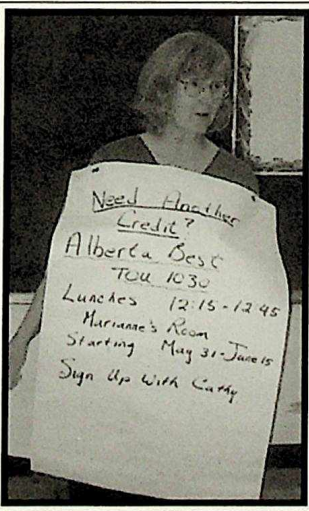 Need Another
Credit?
Alberta Best
TOU 1030
Lunches 12:15-12:45
Marianne's Room
Starting May 31-June 15
Sign Up With Cathy